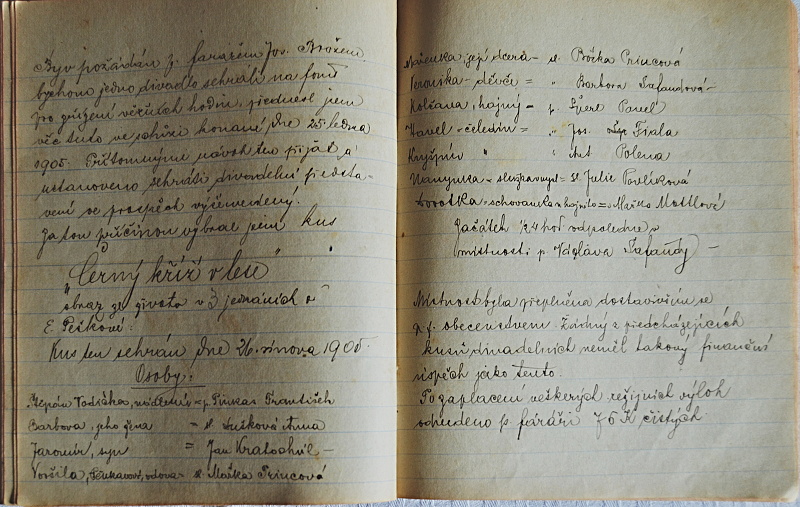 Byv požádán p. farářem Jos. Brožem
bychom jedno divadlo sehráli na fond
pro zřízení věžních hodin, přednesl jsem
věc tuto ve schůzi konané dne 25. ledna
1905. Přítomnými návrh ten přijat a
ustanoveno sehráti divadelní předsta-
vení ve prospěch výšeuvedený.
Za tou příčinou vybral jsem kus
„Černý kříž v lese"
obraz ze života v 3 jednáních od
E. Peškové:
Kus ten sehrán dne 26. února 1905.
Osoby:
Štěpán Vodička, = p. Pinkas František
Barbora, jeho žena = sl. Anna
Jaromír, syn = Jan Kratochvíl -
Voršila, vdova - sl. Mařka Princová
Mařenka, její dcera - sl. Božka Princová
Veronika - děvče = " Barbora Šafandová -
hajný = p. Karel
Havel - čeledín = " Jos. Fiala
" " Ant Polena
Nanynka = sl. Julie Pavlíková
Dorotka = schovanka = Mařka Mottlová
Začátek 1/24 hod odpoledne v
místnosti p. Václava Šafandy -
Místnost byla přeplněna dostavivším se
p. t. obecenstvem. Žádný z předcházejících
kusů divadelních neměl takový finanční
úspěch jako tento.
Po zaplacení veškerých režijních výloh
odvedeno p. faráři 76 K čistých